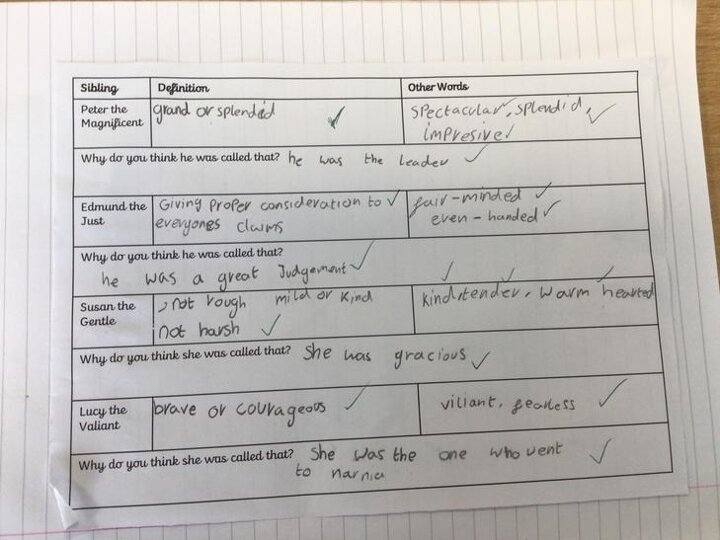 Sibling Definition Other Words
Peter the
Magnificent
grand or splendid
spectacular, splendid,
impresive
Why do you think he was called that? he was the leader
Edmund the
Just
Giving proper consideration to
everyones claims
fair-minded
even-handed
Why do you think he was called that?
he was a great Judgement
Susan the
Gentle
, not rough mild or kind
not harsh
kind, tender, warm hearted
Why do you think she was called that? She was gracious
Lucy the
Valiant
brave or courageous
viliant, fearless
Why do you think she was called that? She was the one who went
to narnia